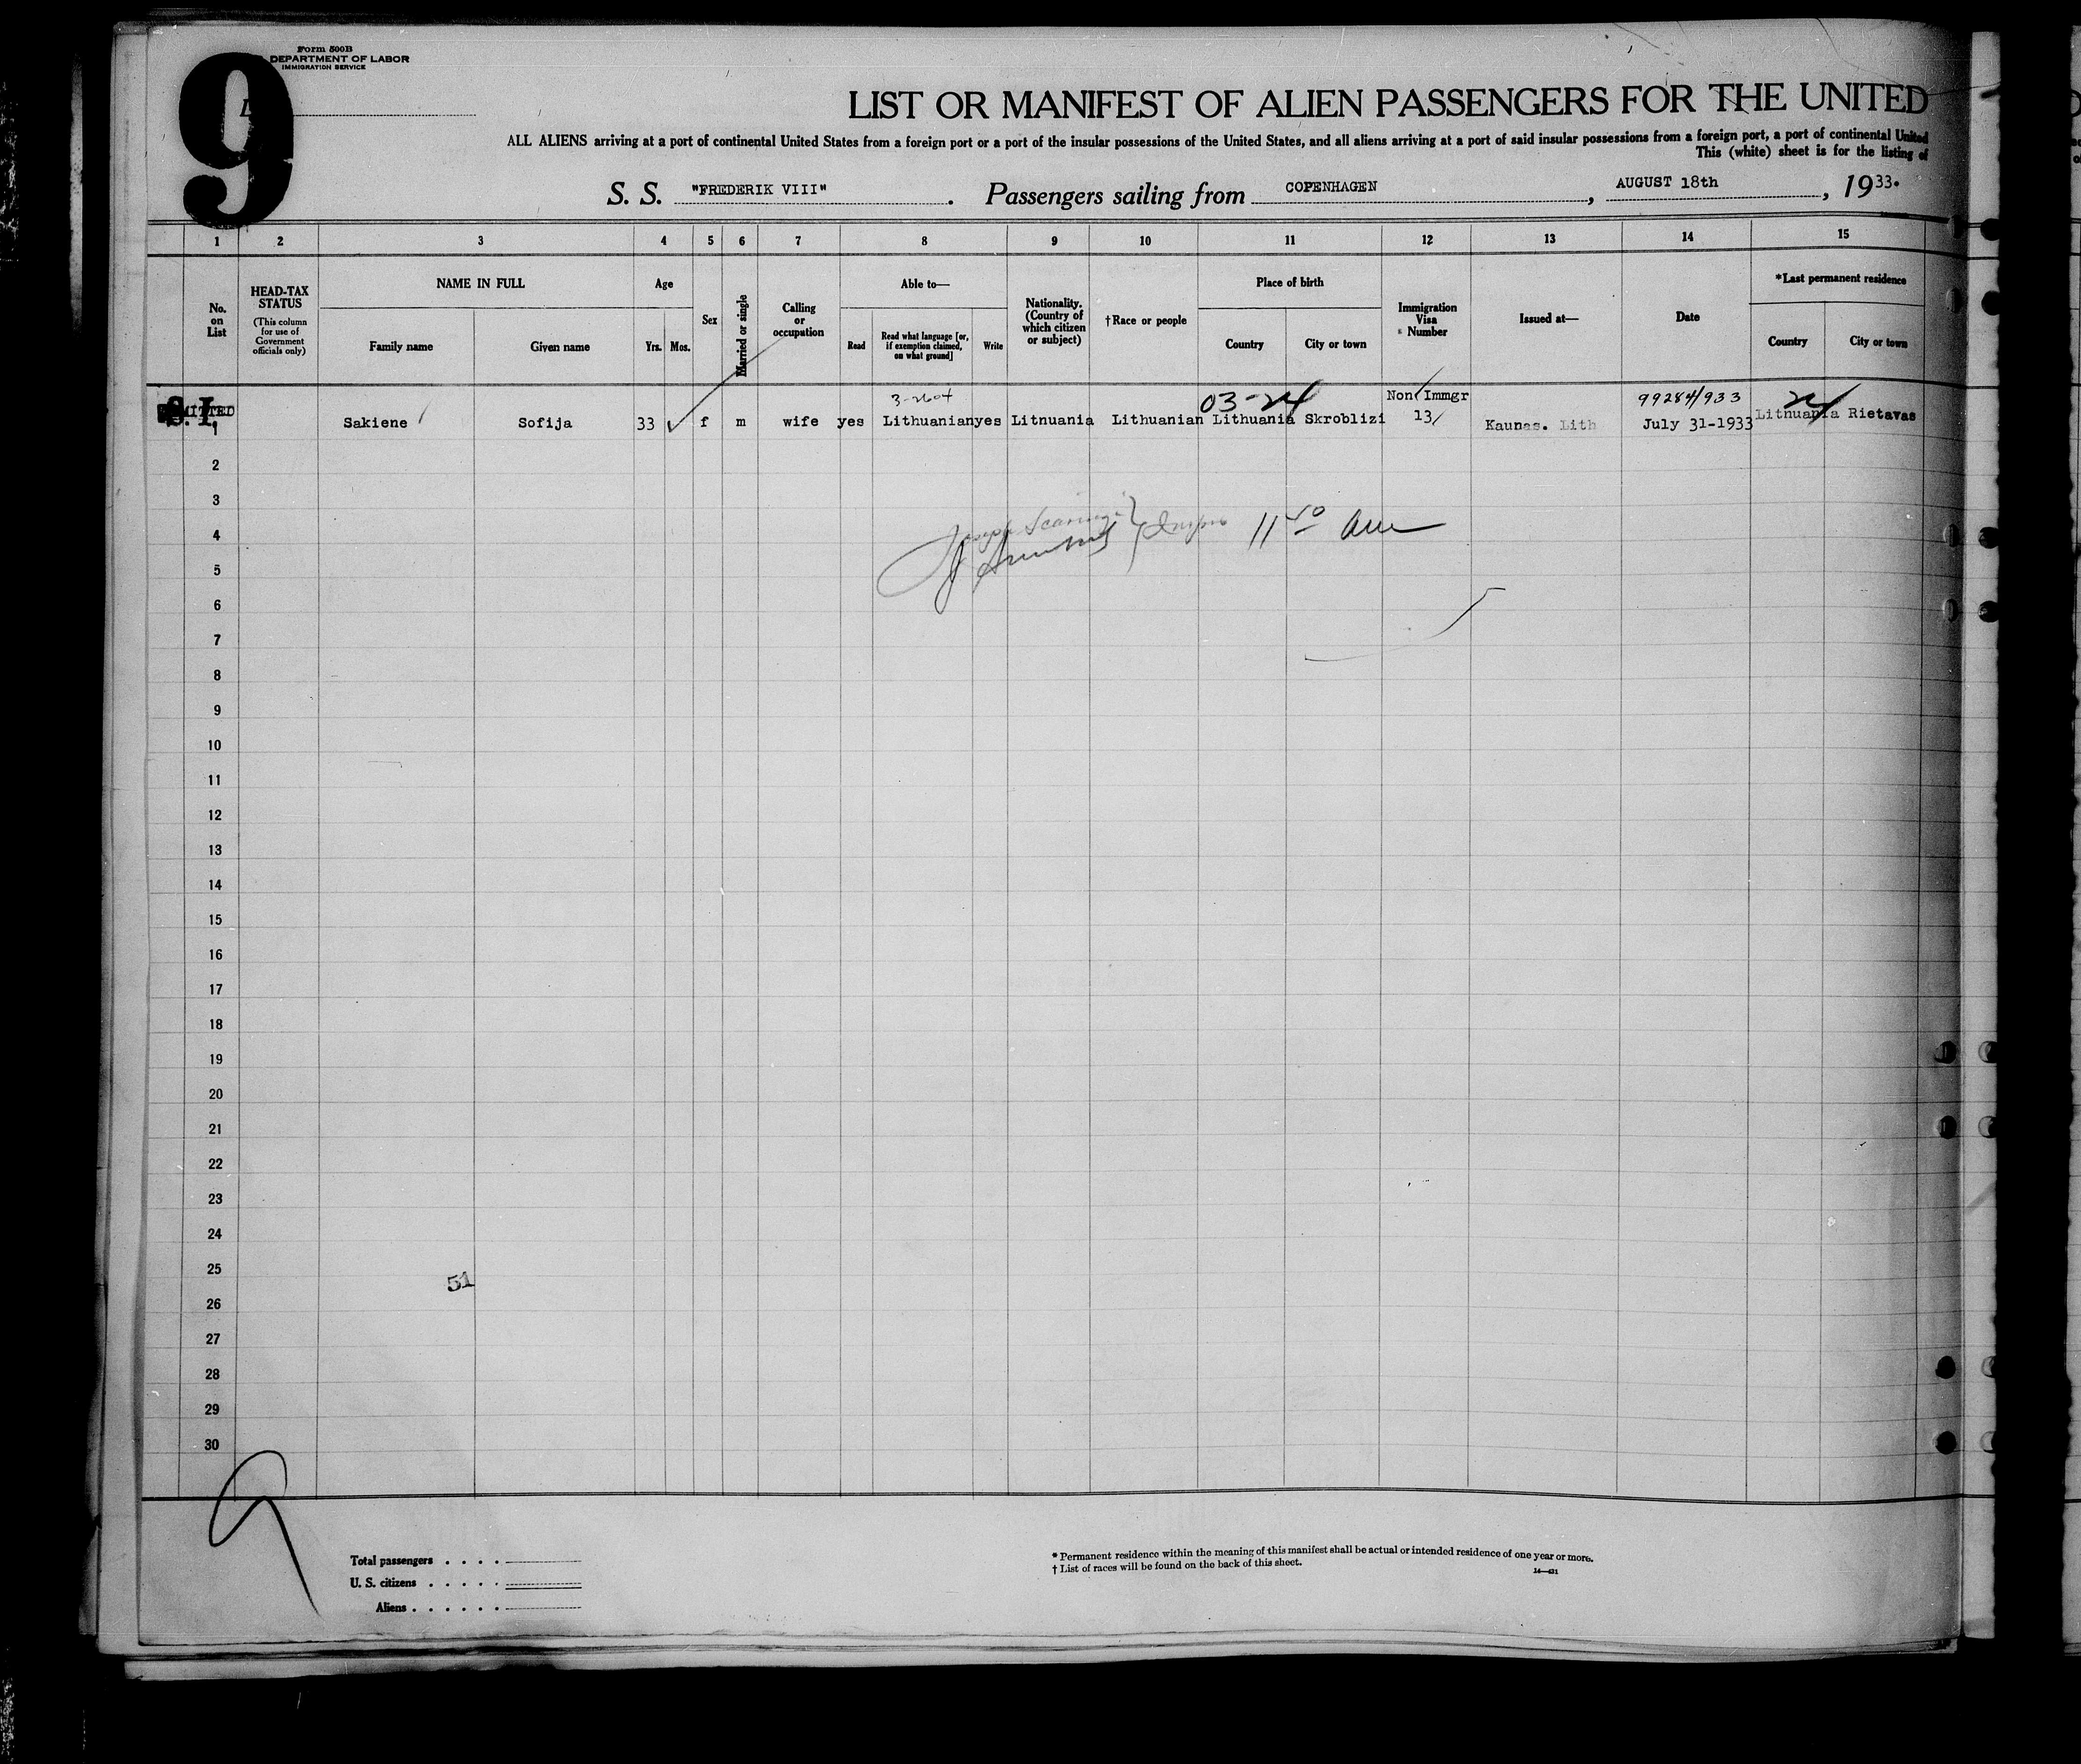 9
Form 500B
DEPARTMENT OF LABOR
IMMIGRATION SERVICE
LIST OR MANIFEST OF ALIEN PASSENGERS FOR THE UNITED
ALL ALIENS arriving at a port of continental United States from a foreign port or a port of the insular possessions of the United States, and all aliens arriving at a port of said insular possessions from a foreign port, a port of continental United
This (white) sheet is for the listing of
S. S. "FREDERIK VIII". Passengers sailing from COPENHAGEN, AUGUST 18th, 1933.
1 2 3 4 5 6 7 8 9 10 11 12 13 14 15
No. on List
HEAD-TAX STATUS
(This column for use of Government officials only)
NAME IN FULL
Family name Given name
Age
Yrs. Mos.
Sex
Married or single
Calling or occupation
Able to—
Read
Read what language [or, if exemption claimed, on what ground]
Write
Nationality. (Country of which citizen or subject)
†Race or people
Place of birth
Country City or town
Immigration Visa Number
Issued at—
Date
*Last permanent residence
Country City or town
3-2604 03-24 Non Immgr 99284/933 24
S.I. 1 Sakiene Sofija 33 f m wife yes Lithuanian yes Litnuania Lithuanian Lithuania Skroblizi 13/ Kaunas. Lith July 31-1933 Lithuania Rietavas
2
3
4
11 40 am
5
6
7
8
9
10
11
12
13
14
15
16
17
18
19
20
21
22
23
24
25
51
26
27
28
29
30
9
Total passengers . . . .
U. S. citizens . . . . .
Aliens . . . . . .
* Permanent residence within the meaning of this manifest shall be actual or intended residence of one year or more.
† List of races will be found on the back of this sheet.
14—431